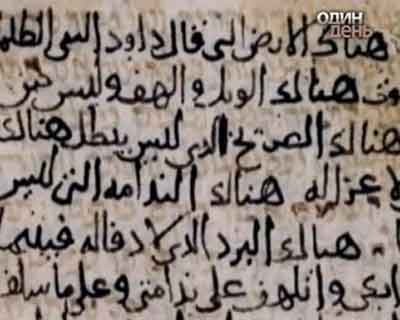 один
день
هناك الارض التى قال داود
هنالك الويل و الهف وليس
هنالك الصريخ الدى ليس يبطل هناك
لا عزا له هناك الندامه التى ليس
هناك البرد الدى لا دفا له
ابكى و اتلهف على ندامتى و على ما سلف